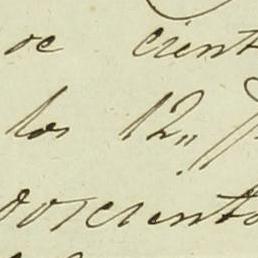 de cient
los 12,,
dosciento